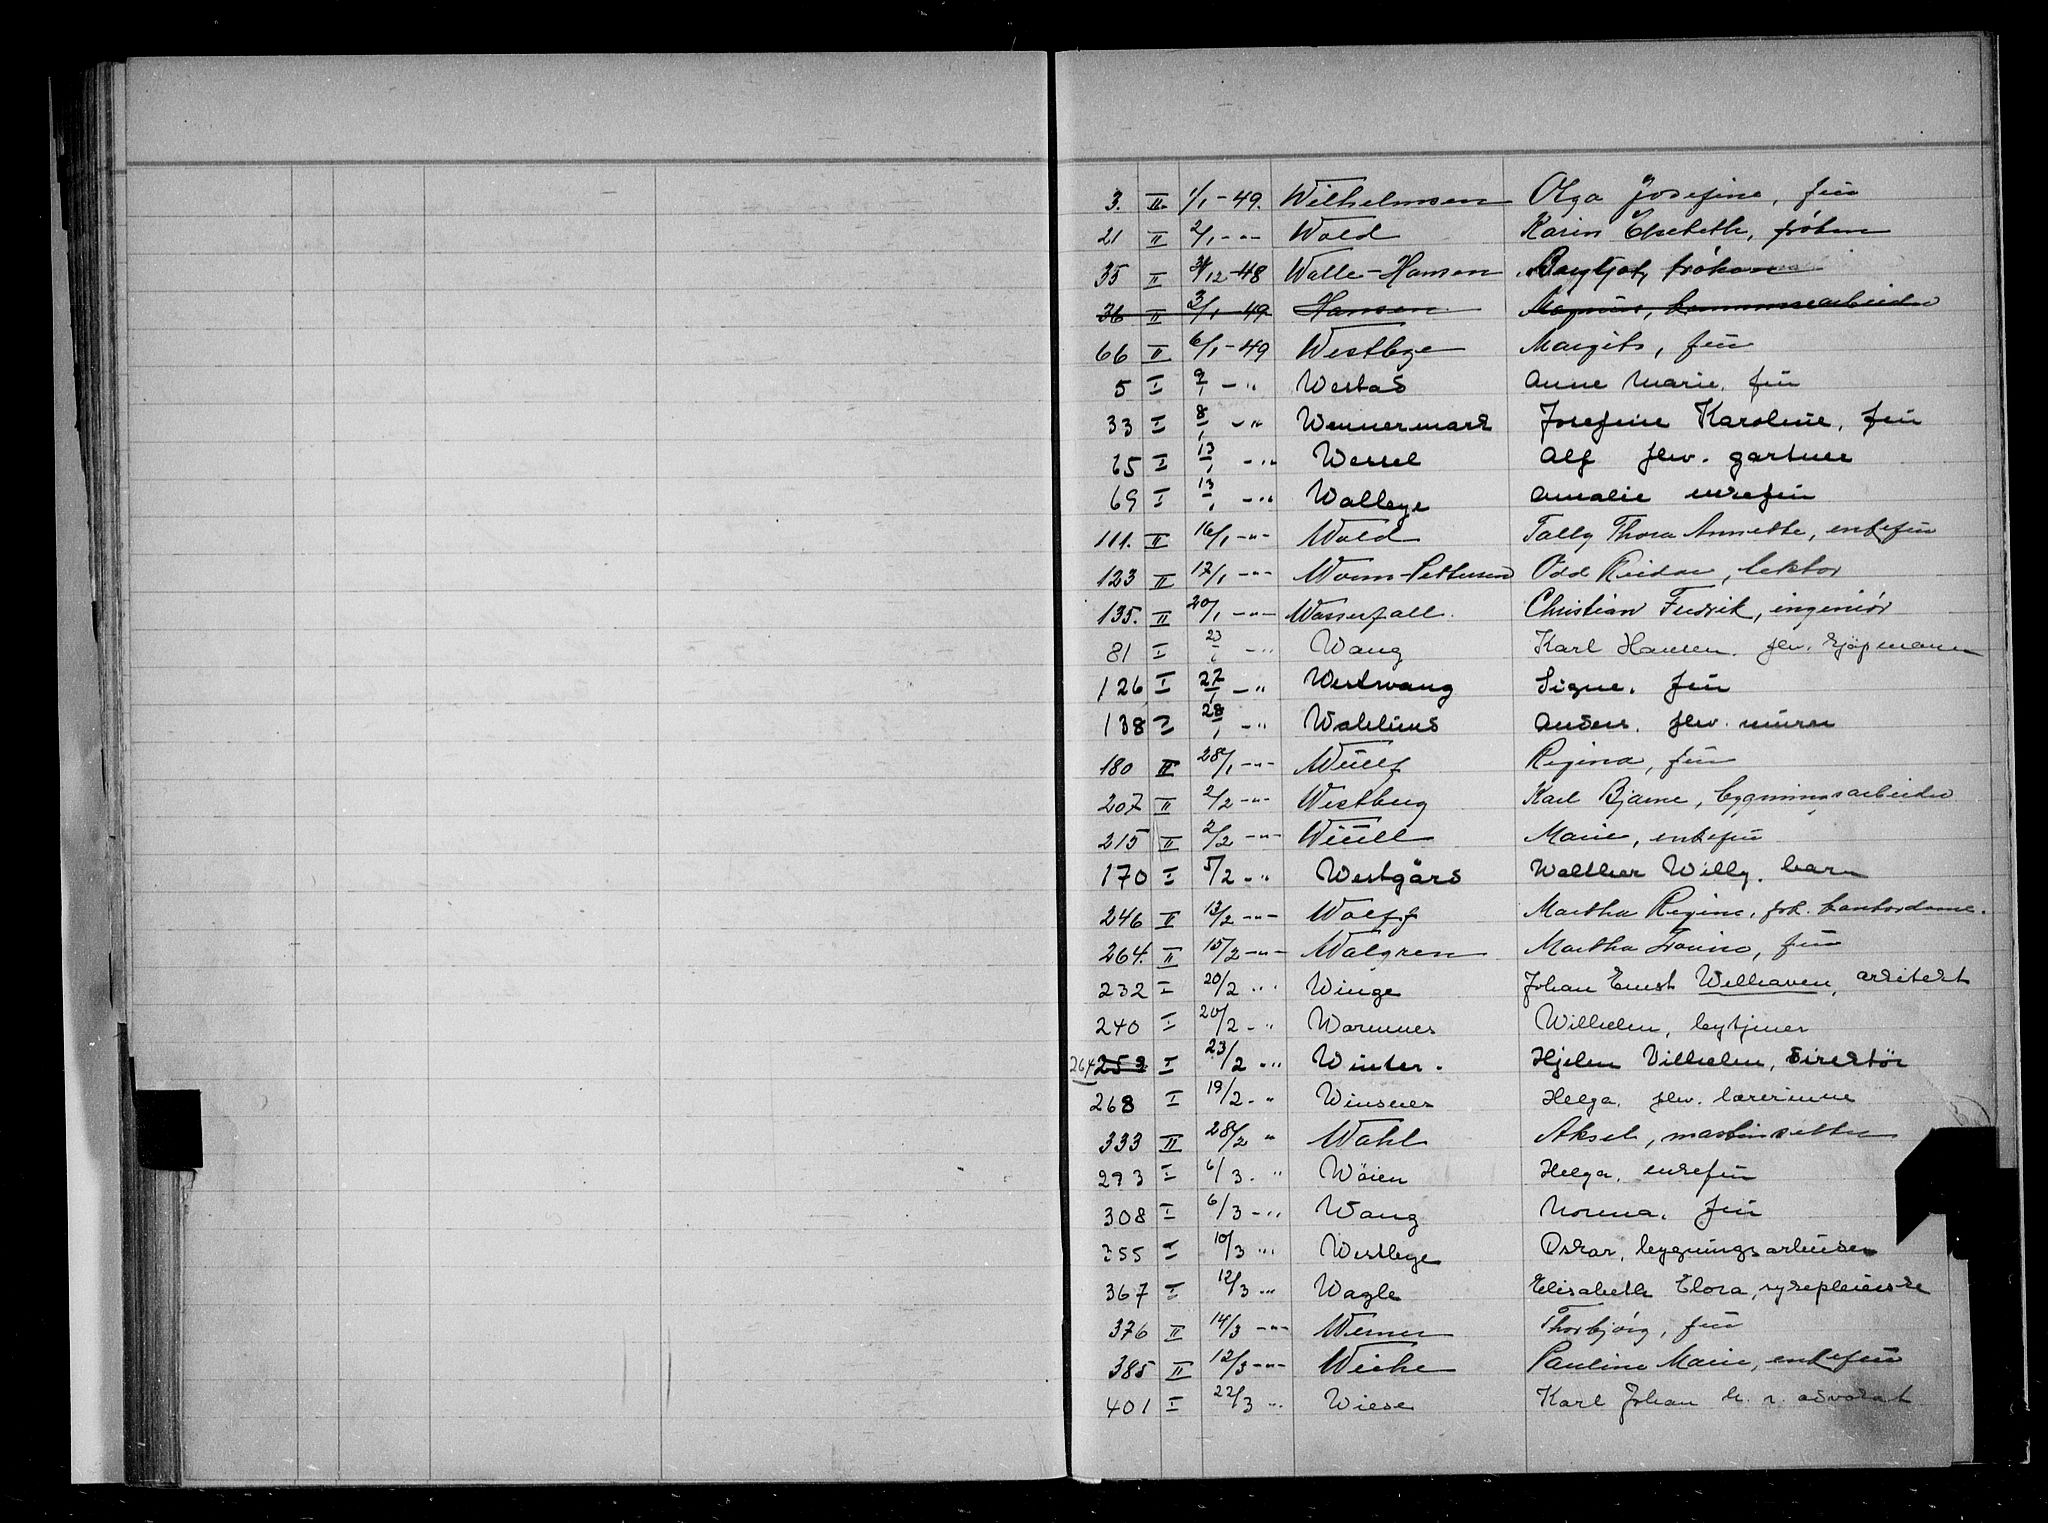 3. II. 1/1 - 49. Wilhelmsen Olga Josefine, frü
21 II 2/1 - " - Wold Karin Elsebeth, frøken
35 II 31/12 - 48 Walle-Hansen frøken
36 II 3/1 49 Hansen Magnus, kommunearbeider
66 II 6/1 - 49 Westbye Margit, frü
5 I 9/1 - " Westad Anne Marie, frü
33 I 8/1 - " Wennermark Josefine Karoline, frü
65 I 13/1 - " Wessel Alf fhv. gartner
69 I 13/1 - " Wallbye Amalie enkefrü
111. II 16/1 - " - Wold Tally Thora Annette, enkefrü
123 II 17/1 - " - Worm-Pettersen Odd Reidar, lektor
135. II 20/1 - " - Wasserfall. Christian Fredrik, ingeniör
81 I 23/1 - " Wang Karl Hansen, fhv. kjøpmann
126 I 27/1 - " Westwang Signe, frü
138 I 28/1 - " Wahlüns Anders, fhv. murer
180 II 28/1 - " - Wüllf Regina, frü
207 II 2/2 - " - Westberg Karl Bjarne, bygningsarbeider
215 II 2/2 - " - Wüll Marie, enkefrü
170 I 5/2 - " Westgård Walther Willy, barn
246 II 13/2 - " - Wolff Martha Regine, frk. kontordame.
264. II 15/2 - " - Walgren Martha, frü
232 I 20/2 " Winge Johan Ernst Welhaven, arkitekt
240 I 20/2 - " Warmnes Wilhelm, bytjener
264 252 I 23/2 - " Winter. Hjelm Vilhelm, direktør
268 I 19/2 - " Winsnes Helga, fhv. lærerinne
333 II 28/2 " Wahl Aksel, maskinsetter
293 I 6/3. " Wøien Helga, enkefrü
308 I 6/3 - " Wang Norma, frü
355 I 10/3 " Westbye Oskar, bygningsarbeider
367 I 12/3 " Wagle Elisabeth Flora, sykepleierske
376 II 14/3 - " - Werner Thorbjørg, frü
385 II 12/3 - " - Wiche Pauline Marie, enkefrü
401 I 22/3 " Wiese Karl Johan h. r. advokat